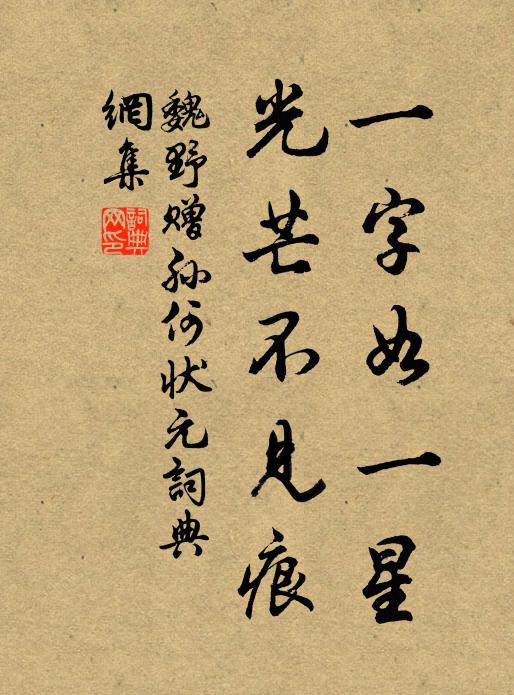 一字如一星
光芒不見痕
魏野贈孫何狀元詞典
網集
詞典
网印